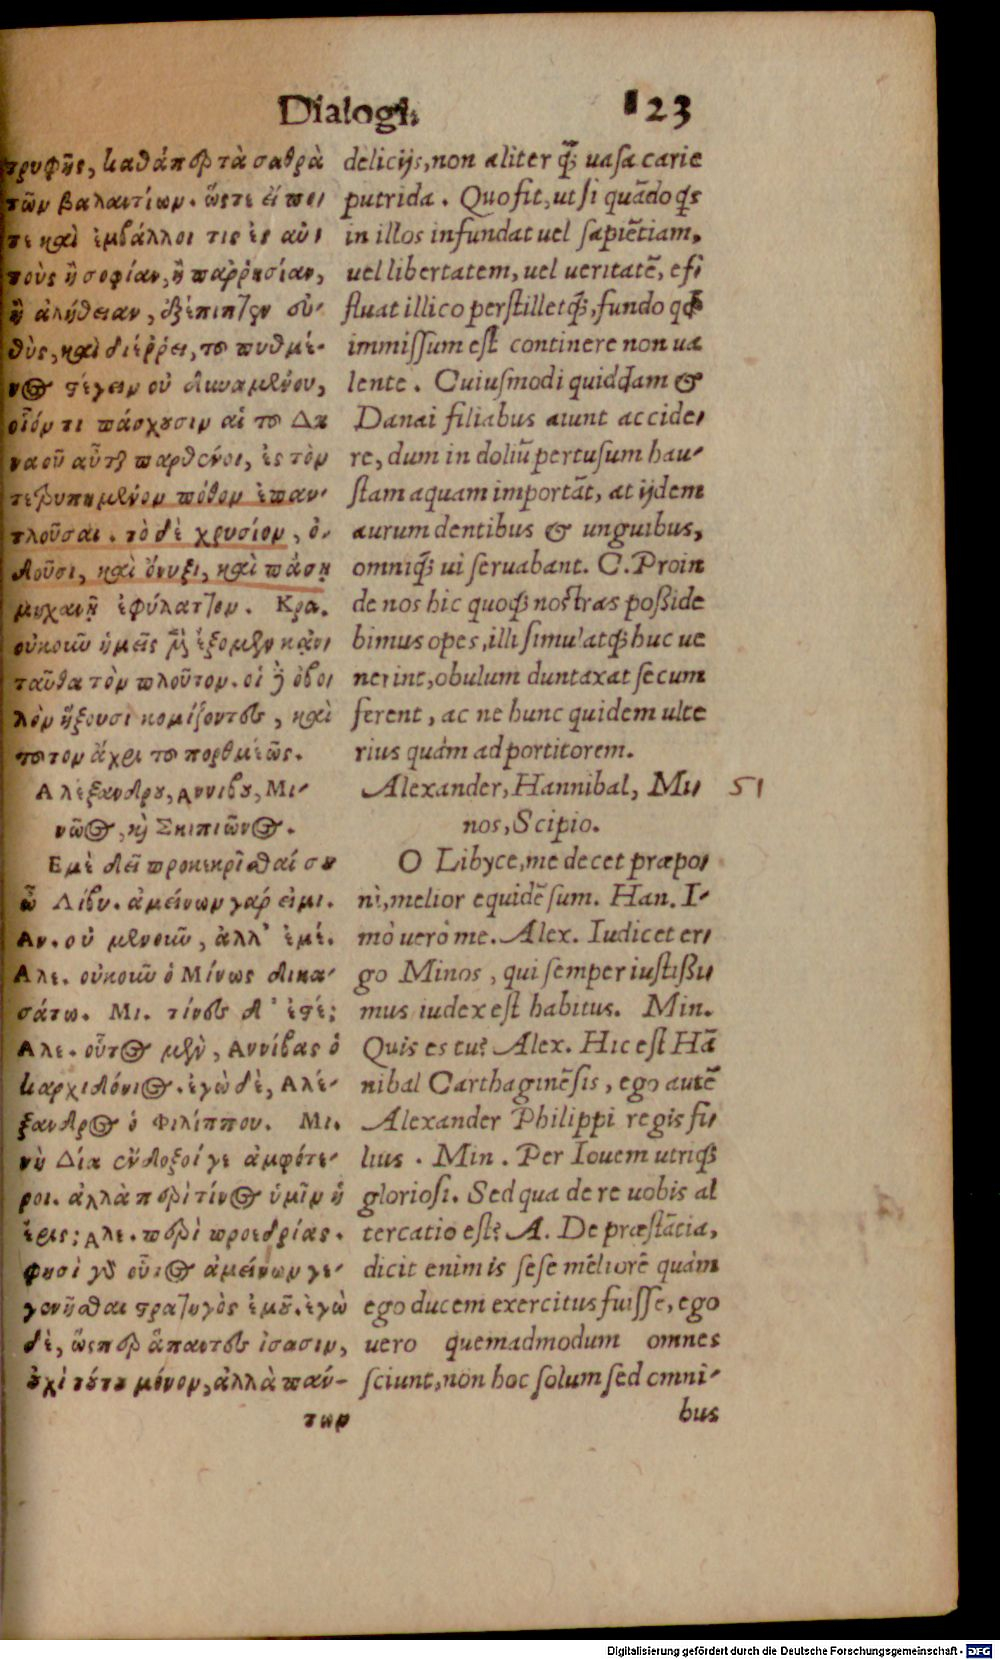 Dialogi. 123
τρυφῆς, καθάπερ τὰ σαθρὰ
τῶν βαλαντίων. ὥςτε εἴ πο-
τε καὶ ἐμβάλλοι τις ἐς αὐ-
τοὺς ἢ σοφίαν, ἢ παῤῥησίαν,
ἢ ἀλήθειαν, ἐξέπιπτεν εὐ-
θὺς, καὶ διέῤῥει, τοῦ πυθμέ-
νος στέγειν οὐ δυναμένου,
οἷόν τι πάσχουσιν αἱ τοῦ Δα
ναοῦ αὗται παρθένοι, ἐς τὸν
τετρυπημένον πόθον ἐπαν-
τλοῦσαι. τὸ δὲ χρυσίον, ὀ-
δοῦσι, καὶ ὄνυξι, καὶ πάσῃ
μηχανῇ ἐφύλαττον. Κρα.
οὐκοῦν ἡμεῖς μὲν ἕξομεν κἀν-
ταῦθα τὸν πλοῦτον. οἱ δὲ ὀβο-
λὸν ἥξουσι κομίζοντες, καὶ
τοῦτον ἄχρι τοῦ πορθμέως.
Αλεξάνδρου, Αννίβου, Μί-
νωος, καὶ Σκιπίωνος.
Εμὲ δεῖ προκεκρίσθαί σου
ὦ Λίβυ. ἀμείνων γάρ εἰμι.
Αν. οὐ μενοῦν, ἀλλ' ἐμέ.
Αλε. οὐκοῦν ὁ Μίνως δικα-
σάτω. Μι. τίνες δ' ἐστέ;
Αλε. οὗτος μὲν, Αννίβας ὁ
καρχηδόνιος. ἐγὼ δὲ, Αλέ-
ξανδρος ὁ Φιλίππου. Μι.
νὴ Δία ἔνδοξοί γε ἀμφότε-
ροι. ἀλλὰ περὶ τίνος ὑμῖν ἡ
ἔρις; Αλε. περὶ προεδρίας.
φησὶ γὰρ οὗτος ἀμείνων γε-
γενῆσθαι στρατηγὸς ἐμοῦ. ἐγὼ
δὲ, ὥςπερ ἅπαντες ἴσασιν,
οὐχὶ τούτου μόνον, ἀλλὰ πάν-
των
delicijs, non aliter q̃ꝫ uasa carie
putrida. Quo fit, ut si quãdo q̃s
in illos infundat uel sapiẽtiam,
uel libertatem, uel ueritatẽ, efi
fluat illico perstilletq̃ꝫ, fundo qđ
immissum est continere non ua
lente. Cuiusmodi quiddam &
Danai filiabus aiunt accide-
re, dum in doliũ pertusum hau-
stam aquam importãt, at ijdem
aurum dentibus & unguibus,
omniq̃ꝫ ui seruabant. C. Proin
de nos hic quoq̃ꝫ nostras posside
bimus opes, illi simulatq̃ꝫ huc ue
nerint, obulum duntaxat secum
ferent, ac ne hunc quidem ulte
rius quàm ad portitorem.
Alexander, Hannibal, Mi- 51
nos, Scipio.
O Libyce, me decet præpo-
ni, melior equidẽ sum. Han. I-
mò uerò me. Alex. Iudicet er-
go Minos, qui semper iustissi-
mus iudex est habitus. Min.
Quis es tu? Alex. Hic est Hã
nibal Carthaginẽsis, ego autẽ
Alexander Philippi regis fi-
lius. Min. Per Iouem utriq̃ꝫ
gloriosi. Sed qua de re uobis al
tercatio est? A. De præstãtia,
dicit enim is sese meliorẽ quàm
ego ducem exercitus fuisse, ego
uero quemadmodum omnes
sciunt, non hoc solum sed omni-
bus
Digitalisierung gefördert durch die Deutsche Forschungsgemeinschaft - DFG